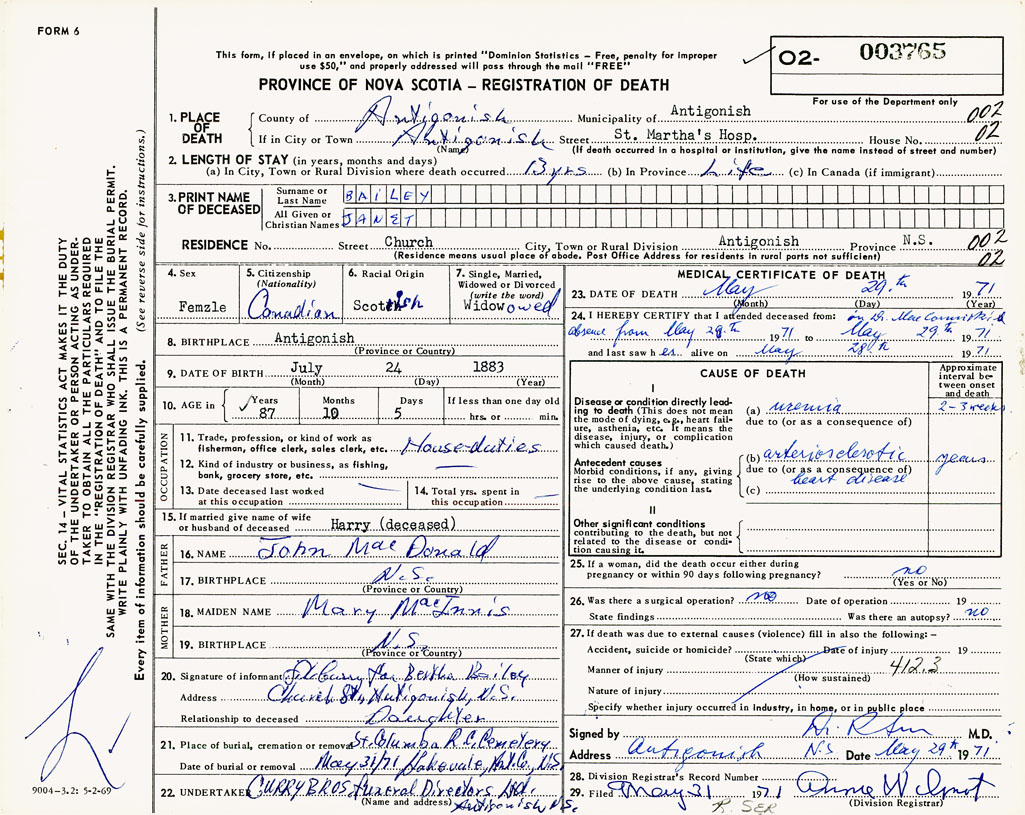 FORM 6
This form, if placed in an envelope, on which is printed "Dominion Statistics – Free, penalty for improper
use $50," and properly addressed will pass through the mail "FREE"
02- 003765
For use of the Department only
PROVINCE OF NOVA SCOTIA – REGISTRATION OF DEATH
1. PLACE OF DEATH
County of Antigonish Municipality of Antigonish 002
If in City or Town Antigonish Street St. Martha's Hosp. House No. 02
(Name) (If death occurred in a hospital or institution, give the name instead of street and number)
2. LENGTH OF STAY (in years, months and days)
(a) In City, Town or Rural Division where death occurred 13 yrs (b) In Province Life (c) In Canada (if immigrant)
3. PRINT NAME OF DECEASED
Surname or Last Name BAILEY
All Given or Christian Names JANET
RESIDENCE No. Street Church City, Town or Rural Division Antigonish Province N.S. 002
(Residence means usual place of abode. Post Office Address for residents in rural parts not sufficient) 02
4. Sex
Femzle
5. Citizenship
(Nationality)
Canadian
6. Racial Origin
Scottish
7. Single, Married,
Widowed or Divorced
(write the word)
Widowowed
8. BIRTHPLACE Antigonish
(Province or Country)
9. DATE OF BIRTH July 24 1883
(Month) (Day) (Year)
10. AGE in Years Months Days If less than one day old
87 10 5 hrs. or min.
OCCUPATION
11. Trade, profession, or kind of work as
fisherman, office clerk, sales clerk, etc. House-duties
12. Kind of industry or business, as fishing,
bank, grocery store, etc.
13. Date deceased last worked
at this occupation
14. Total yrs. spent in
this occupation
15. If married give name of wife
or husband of deceased Harry (deceased)
FATHER
16. NAME John MacDonald
17. BIRTHPLACE N.S.
(Province or Country)
MOTHER
18. MAIDEN NAME Mary MacInnis
19. BIRTHPLACE N.S.
(Province or Country)
20. Signature of informant Curry for Bertha Bailey
Address Church St, Antigonish, N.S.
Relationship to deceased Daughter
21. Place of burial, cremation or removal St. Columba R.C. Cemetery
Date of burial or removal May 31/71 Lakevale, Ant. Co., N.S.
22. UNDERTAKER CURRY BROS, Funeral Directors Ltd.
(Name and address) Antigonish N.S.
MEDICAL CERTIFICATE OF DEATH
23. DATE OF DEATH May 29.th 1971
(Month) (Day) (Year)
24. I HEREBY CERTIFY that I attended deceased from: in Dr. Mac
absence from May 28.th 1971 to May 29.th 1971
and last saw h es alive on May 28.th 1971
CAUSE OF DEATH
Approximate
interval be-
tween onset
and death
I
Disease or condition directly lead-
ing to death (This does not mean
the mode of dying, e.g., heart fail-
ure, asthenia, etc. It means the
disease, injury, or complication
which caused death.)
(a) uremia 2-3 weeks
due to (or as a consequence of)
Antecedent causes
Morbid conditions, if any, giving
rise to the above cause, stating
the underlying condition last.
(b) arteriosclerotic years
due to (or as a consequence of)
heart disease
(c)
II
Other significant conditions
contributing to the death, but not
related to the disease or condi-
tion causing it.
25. If a woman, did the death occur either during
pregnancy or within 90 days following pregnancy? no
(Yes or No)
26. Was there a surgical operation? no Date of operation 19
State findings Was there an autopsy? no
27. If death was due to external causes (violence) fill in also the following: –
Accident, suicide or homicide? Date of injury 19
(State which)
Manner of injury 412.3
(How sustained)
Nature of injury
Specify whether injury occurred in industry, in home, or in public place
Signed by Dr. R M.D.
Address Antigonish NS Date May 29th 1971
28. Division Registrar's Record Number
29. Filed May 31 1971 Annie Wilmot
(Division Registrar)
R. SER
SEC. 14 – VITAL STATISTICS ACT MAKES IT THE DUTY
OF THE UNDERTAKER OR PERSON ACTING AS UNDER-
TAKER TO OBTAIN ALL THE PARTICULARS REQUIRED
IN THE "REGISTRATION OF DEATH" AND TO FILE THE
SAME WITH THE DIVISION REGISTRAR WHO SHALL ISSUE THE BURIAL PERMIT.
WRITE PLAINLY WITH UNFADING INK. THIS IS A PERMANENT RECORD.
Every item of information should be carefully supplied. (See reverse side for instructions.)
9004-3.2: 5-2-69